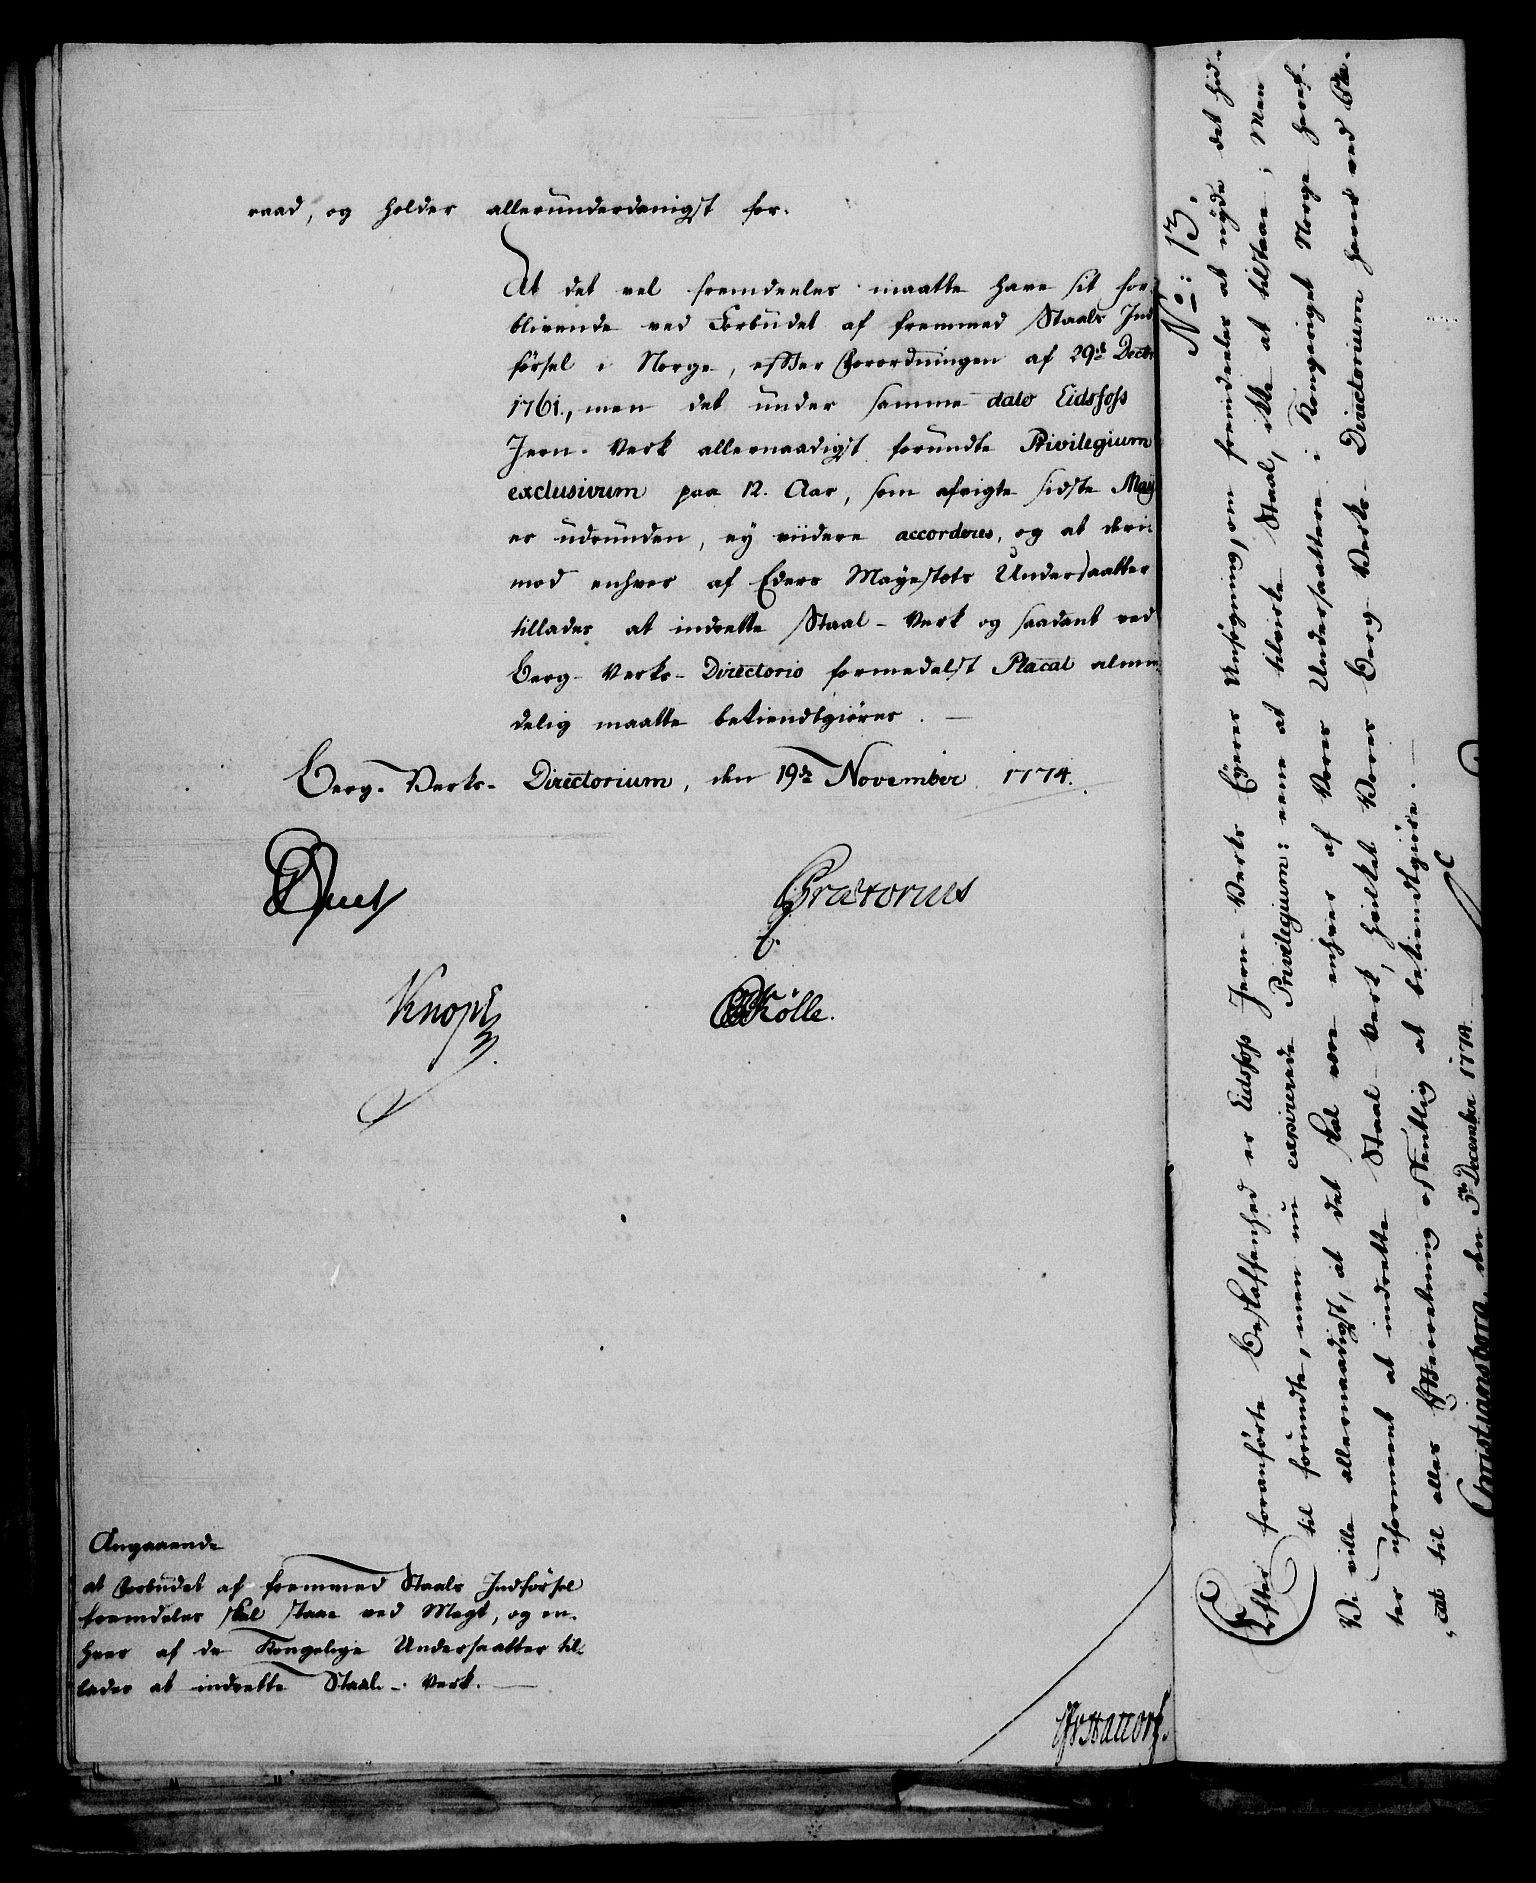 raad, og holder allerunderdanigst for.
At det vel fremdeeles maatte have sit for-
blivende ved Forbudet af fremmed Staals Ind
førsel i Norge, efter Forordningen af 29de Decbr
1761., men det under samme dato Eidsfoss
Jern-Verk allernaadigst forundte Privilegium
exclusivum paa 12. Aar, som afvigte sidste Maij
er udrunden, ey viidere accorderes, og at deri-
mod enhver af Eders Mayestæts Undersaatter
tillades at indrette Staal-Verk og saadant ved
Berg-Verks-Directorio formedelst Placat almin
delig maatte bekiendtgiøres. —
Berg-Verks-Directorium, den 19de November 1774.
Prætorius
Knoph
Kølle.
Angaaende
at Forbudet af fremmed Staals Indførsel
fremdeles skal staae ved Magt, og en-
hver af de Kongelige Undersaatter til-
lades at indrette Staal-Verk. —
No: 13.
Efter foranførte Beskaffenhed er Eidsfoss Jern-Verks Eyeres Ansøgning, om fremdeeles at nyde det hid-
til forundte, men nu expirerede Privilegium: eene at tilvirke Staal, ikke at tilstaae; Men
Vi ville allernaadigst, at det skal være enhver af Vores Undersaattere i Kongeriget Norge heref-
ter uformeent at indrette Staal-Verk, hvilket Vores Berg-Verks-Directorium haver ved Pla-
cat til alles Efterretning offentlig at bekiendtgiøre. —
Christiansborg, den 5te December 1774.